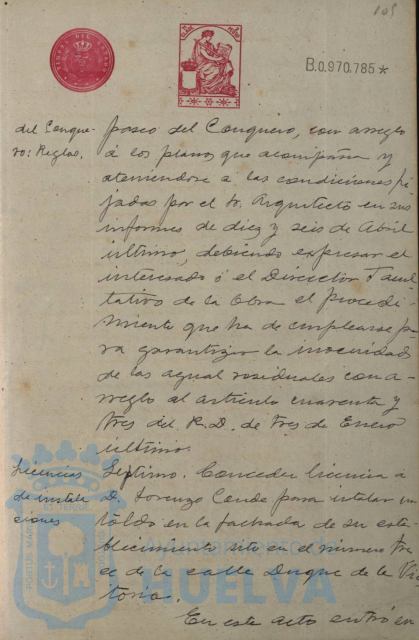 105
B.0.970.785*
del Conque-
ro: Reglas.
paseo del Conquero, con arreglo
á los planos que acompaña y
ateniendose a las condiciones fi
jadas por el Sr. Arquitecto en sus
informes de diez y seis de Abril
ultimo, debiendo expresar el
interesado ó el Director Facul
tativo de la obra el procedi
miento que ha de emplearse pa
ra garantizar la inocuidad
de las aguas residuales con a-
rreglo al artículo cuarenta y
tres del R. D. de tres de Enero
ultimo.
Licencias
de instala
ciones
Septimo. Conceder licencia á
D. Lorenzo Conde para instalar un
toldo en la fachada de su esta
blecimiento sito en el numero tre
ce de la calle Duque de la Vic
toria.
En este acto entró en
Ayuntamiento de
HUELVA